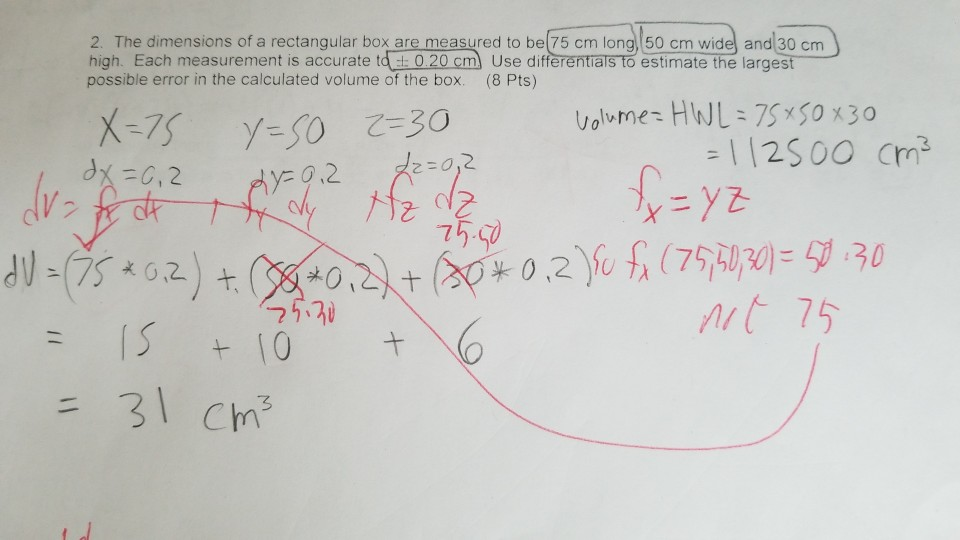 2. The dimensions of a rectangular box are measured to be 75 cm long, 50 cm wide, and 30 cm
high. Each measurement is accurate to ± 0.20 cm. Use differentials to estimate the largest
possible error in the calculated volume of the box. (8 Pts)
X=75 y=50 z=30
volume = HWL = 75×50×30
= 112500 cm³
dx=0,2 dy=0.2 dz=0,2
dv = fx dx + fy dy + fz dz
fx = yz
75.50
dV = (75 * 0,2) + (50 * 0,2) + (30 * 0,2)
so fx (75,50,30) = 50.30
75.30
not 75
= 15 + 10 + 6
= 31 cm³